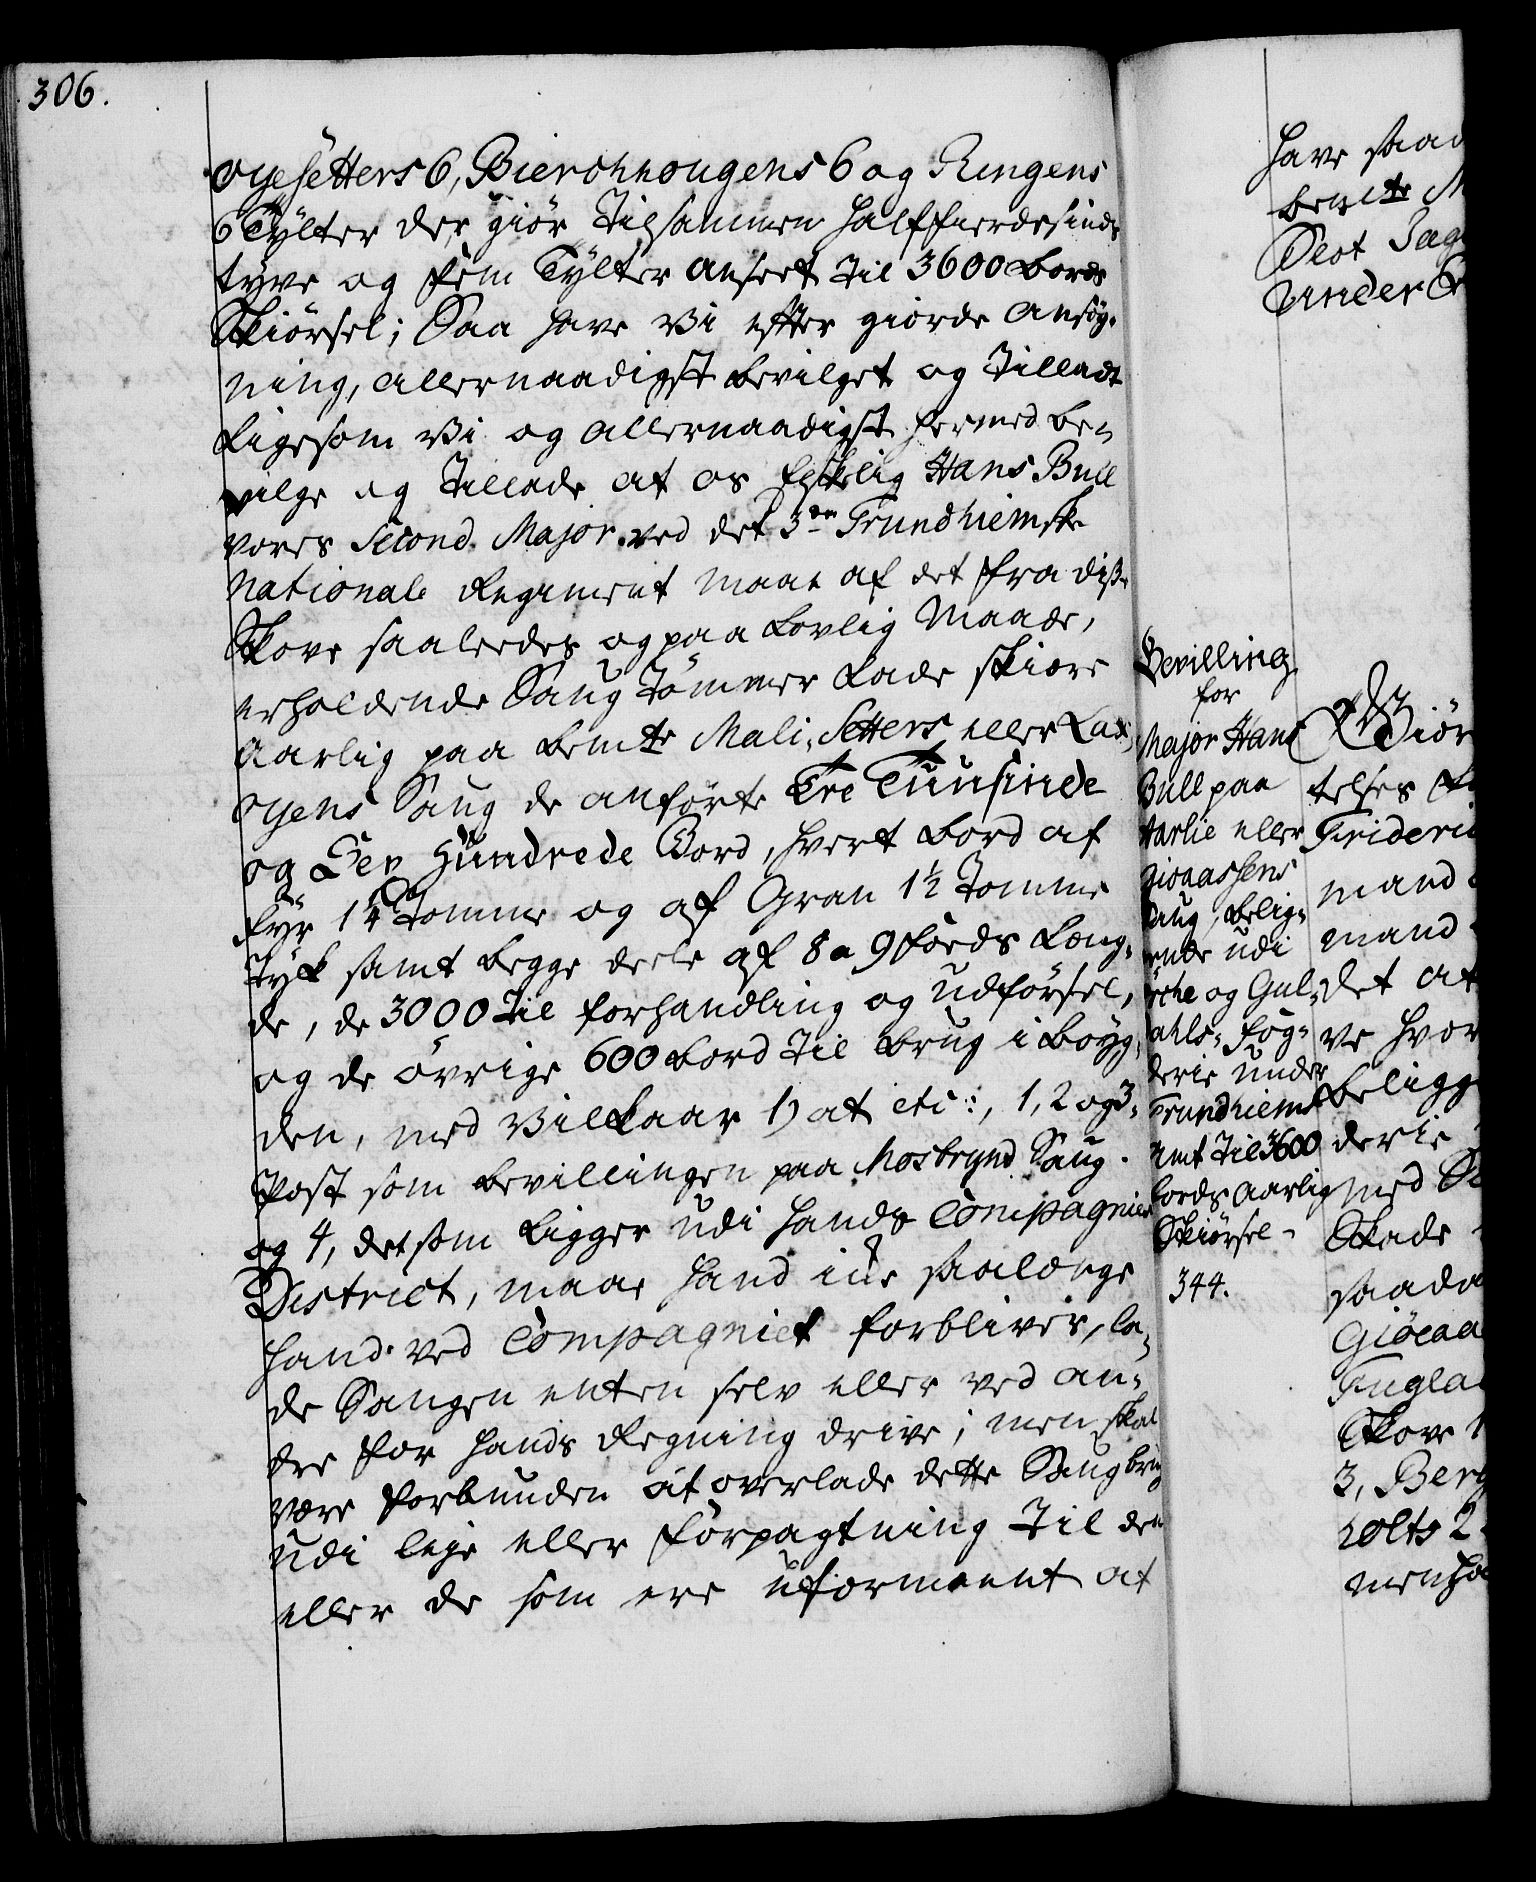 306.
oyesetters 6, Bierchhougens 6 og Ringens
6 Tylter der giör Tilsammen halffierdesinds
tyve og fem Tylter ansert til 3600 bords
Skiörsel; Saa have Vi effter giorde Ansög-
ning, allernaadigst bevilget og Tilladt
Ligesom Vi og allernaadigst hermed be-
vilge og Tillade at os Elskelig Hans Bull
vores Second Major ved det 3de Trundhiemske
nationale Regiment maae af det fra disse
Skove saaledes og paa Lovlig Maade,
erholdende Saug Tömmer Lade skiære
Aarlig paa bemte Mali, Setters eller Lax-
oyens Saug de anförte Tre Tuusinde
og Sex Hundrede Bord, hvert Bord af
Fyr 1¼ Tomme og af Gran 1½ Tomme
Tyk samt begge deele af 8 a 9 foeds Læng-
de, de 3000 Til forhandling og Udförsel,
og de övrige 600 bord Til brug i böyg-
den, med Vilkaar 1) at etc:, 1, 2 og 3.
Post som bevillingen paa Mostrynd Saug.
og 4, det som Ligger udi hands Compagnies
District, maae hand iue saalænge
hand ved Compagniet forbliver, la-
de Saugen enten selv eller ved an-
dre for hands Regning drive; men skal
være forbunden at overlade dette Saugbrug
udi leje eller forpagtning Til den
eller de som ere uformeent at
have saad
bemte M
Slot Sag
Under
Bevilling
for
Major Hans
Bull paa
Harlie eller
Gioaasens
Saug, belig-
ende udi
Örche og Gul-
dahls-Fog-
derie under
Trundhiems
Amt Til 3600
bords aarlig
Skiörsel-
344.
Giör
telses
Frideri
mand
mand
det at
ve hvor
beligg
derie
med
Skade
saada
Giöeaa
Fugla
Skove
3, Berg
holts 2
menha